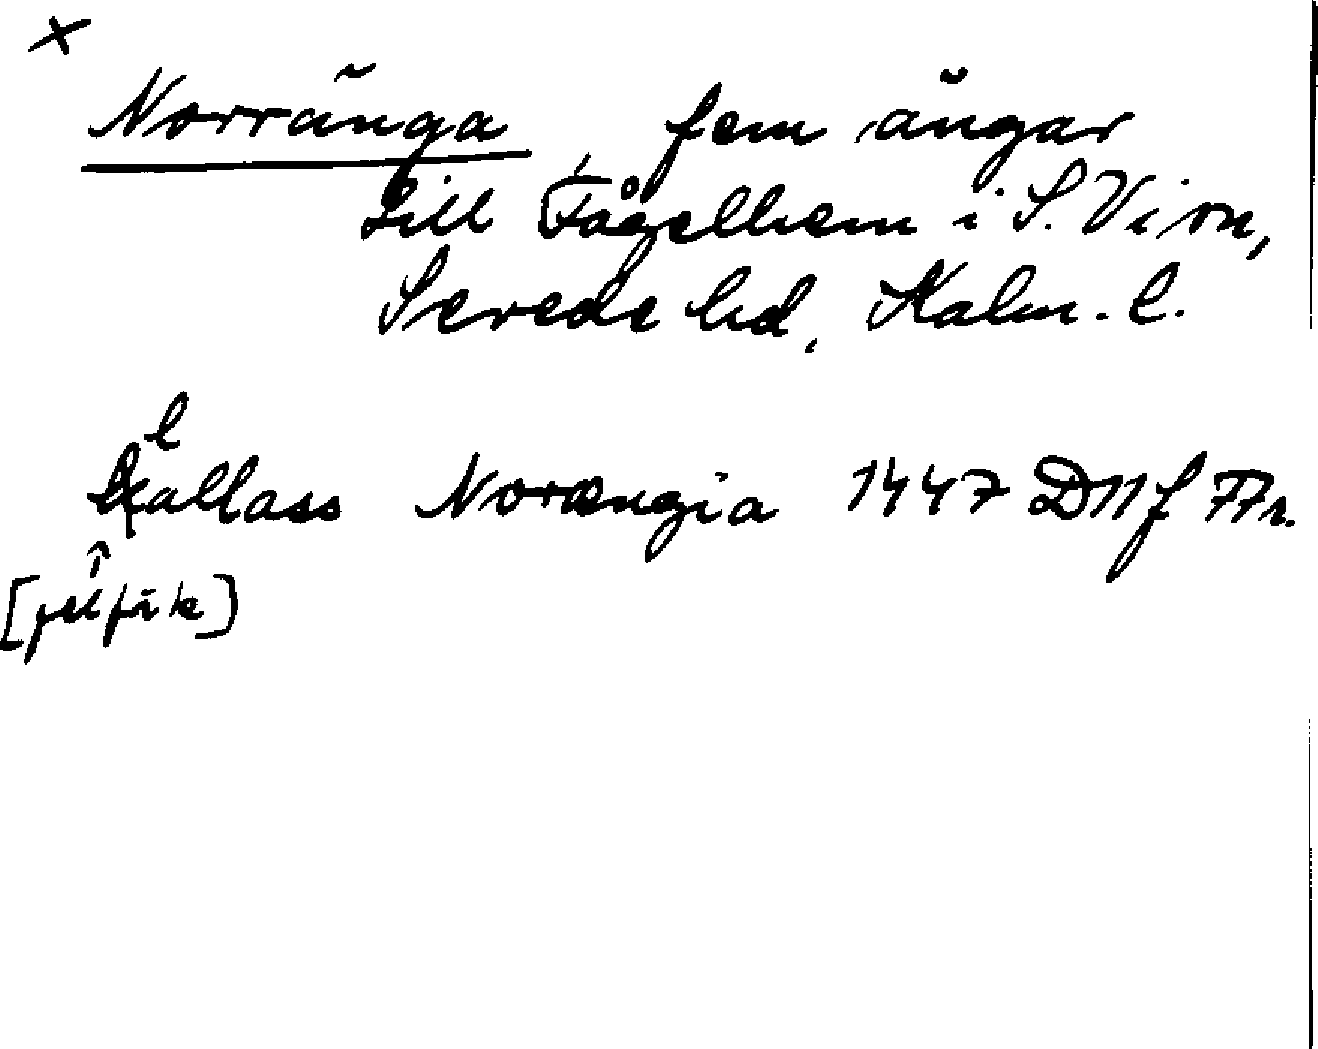 ×
Norränga fem ängar
till Fågelhem i S. Vi sn,
Sevede hd, Kalm. l.
l
kallass Norængia 1447 DNf 77 r.
[